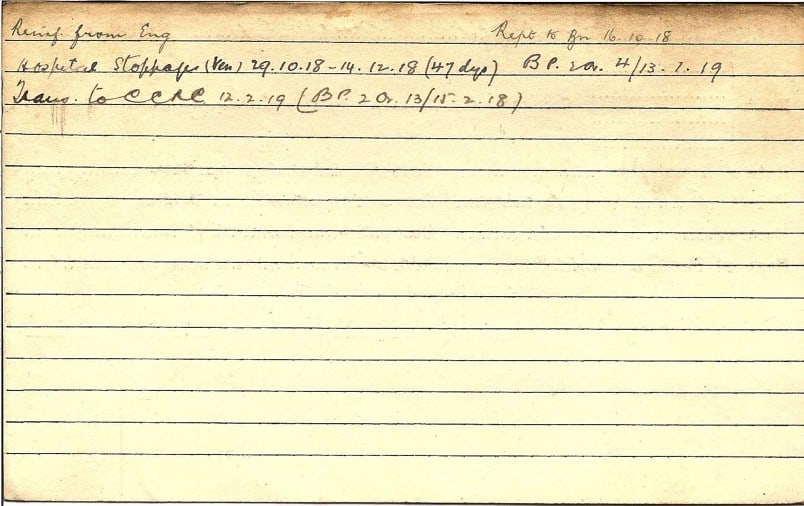 Reinf. from Eng Rept to Bn 16.10.18
Hospital Stoppage (Ven) 29.10.18-14.12.18 (47 dys) B P. 2 Or. 4/13.1.19
Trans. to CCAC 12.2.19 (B P. 2 Or. 13/15.2.18)